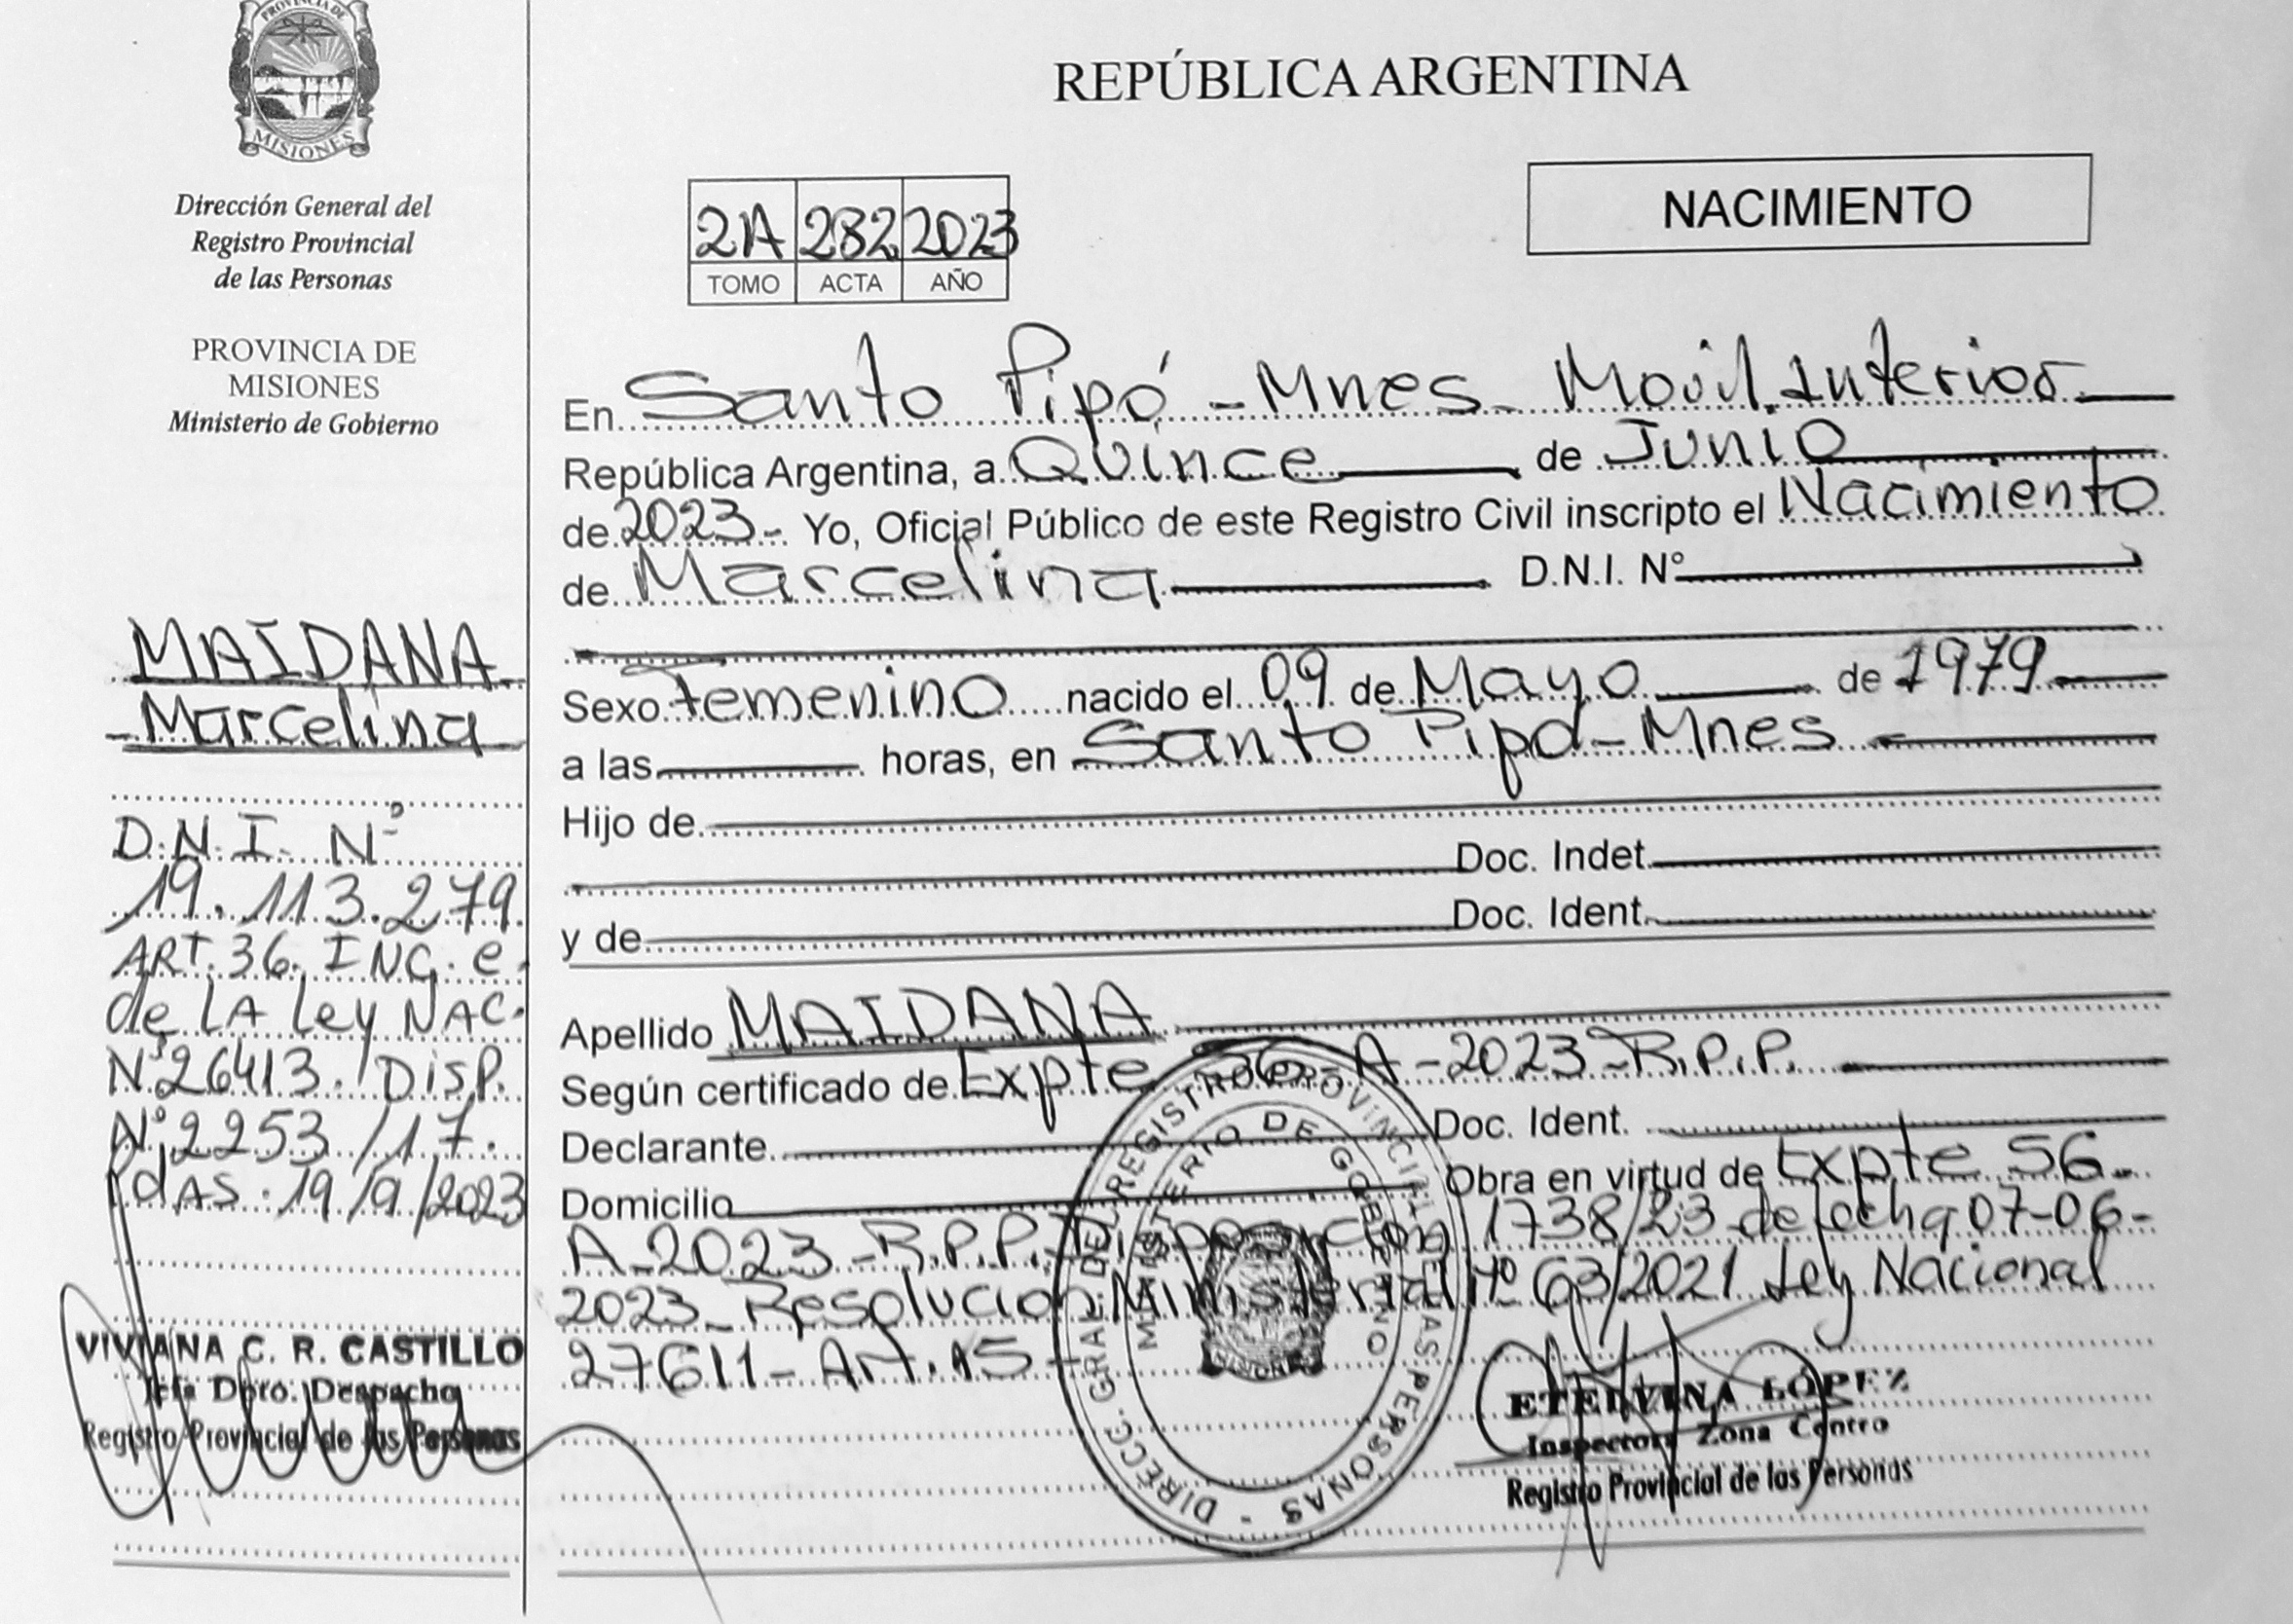 PROVINCIA DE
MISIONES
Dirección General del
Registro Provincial
de las Personas
PROVINCIA DE
MISIONES
Ministerio de Gobierno
MAIDANA
Marcelina
D.N.I. Nº
19.113.279
ART. 36. INC. e
de LA Ley NAC.
Nº26413. DISP.
Nº2253/17.
PdAS. 19/9/2023
VIVIANA C. R. CASTILLO
Jefa Dpto. Despacho
Registro Provincial de las Personas
REPÚBLICA ARGENTINA
NACIMIENTO
2A 282 2023
TOMO ACTA AÑO
En Santo Pipó - Mnes - Movil Interior
República Argentina, a Quince de Junio
de 2023 - Yo, Oficial Público de este Registro Civil inscripto el Nacimiento
de Marcelina D.N.I. Nº
Sexo Femenino nacido el 09 de Mayo de 1979
a las horas, en Santo Pipó - Mnes -
Hijo de
Doc. Indet.
y de Doc. Ident.
Apellido MAIDANA
Según certificado de Expte 56 - A - 2023 - R.P.P.
Declarante Doc. Ident.
Domicilio Obra en virtud de Expte 56 -
A - 2023 - R.P.P. Disposición 1738/23 de fecha 07-06-
2023 - Resolucion Ministerial Nº 63/2021 Ley Nacional
27611 - Art. 15 -
DIRECC. GRAL. DEL REGISTRO PROVINCIAL DE LAS PERSONAS -
MINISTERIO DE GOBIERNO
MISIONES
ETELVINA LÓPEZ
Inspectora Zona Centro
Registro Provincial de las Personas